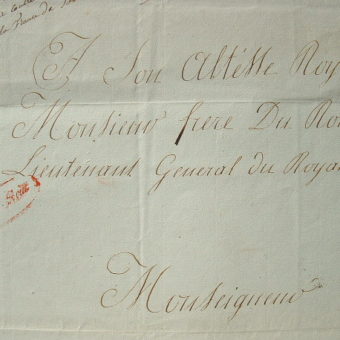 A Son Altésse Roy
Monsieur frere Du Roi
Lieuténant General du Roya
Monseigneur